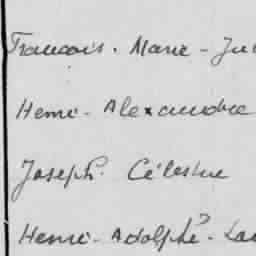 Francois. Marie - Ju
Henri - Alexandre
Joseph. Célestine
Henri - Adolphe? - Lau